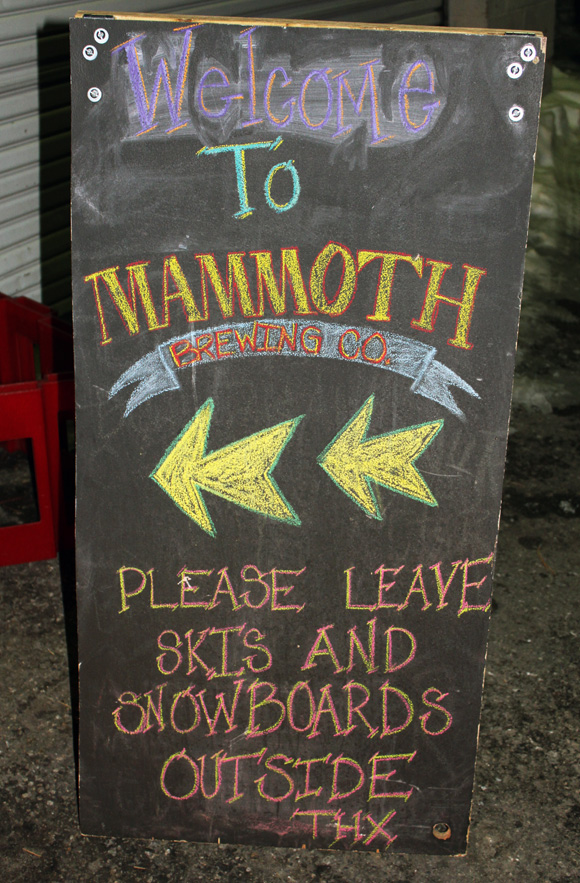 Welcome
To
MAMMOTH
BREWING CO.
PLEASE LEAVE
SKIS AND
SNOWBOARDS
OUTSIDE
THX